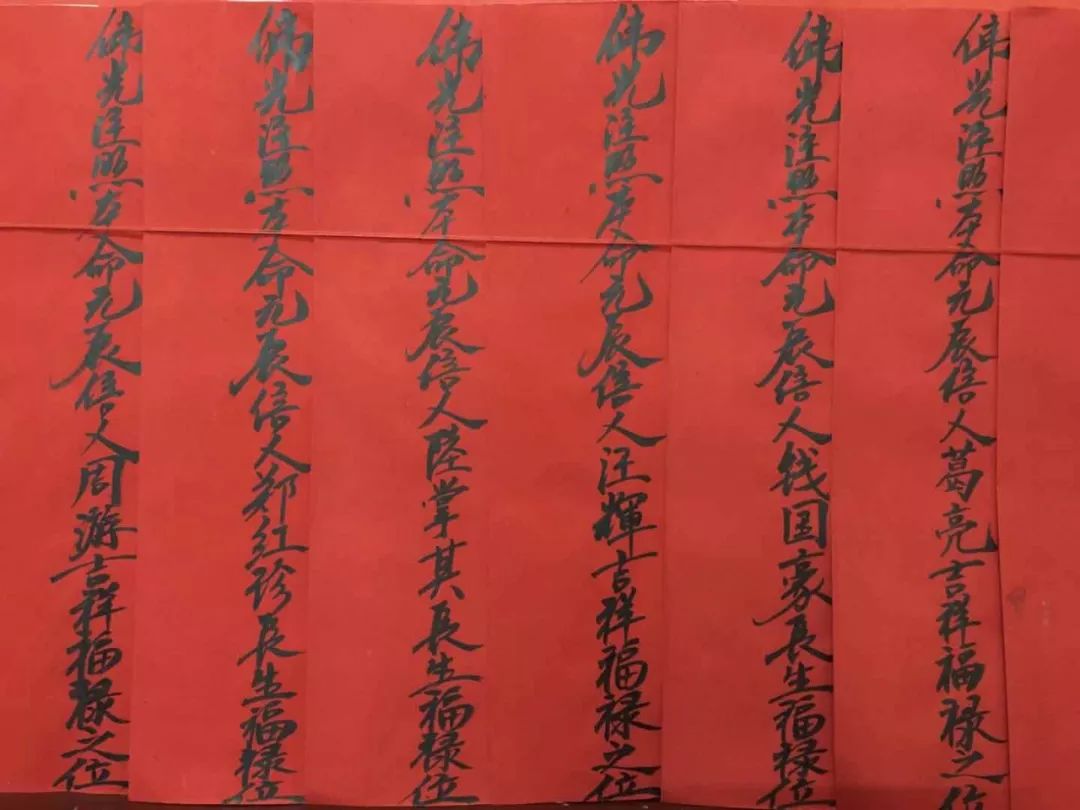 佛光注照本命元辰信人葛亮吉祥福禄之位
佛光注照本命元辰信人钱国豪長生福禄位
佛光注照本命元辰信人汪輝吉祥福禄之位
佛光注照本命元辰信人陸掌其長生福禄位
佛光注照本命元辰信人郑红珍長生福禄位
佛光注照本命元辰信人周游吉祥福禄之位